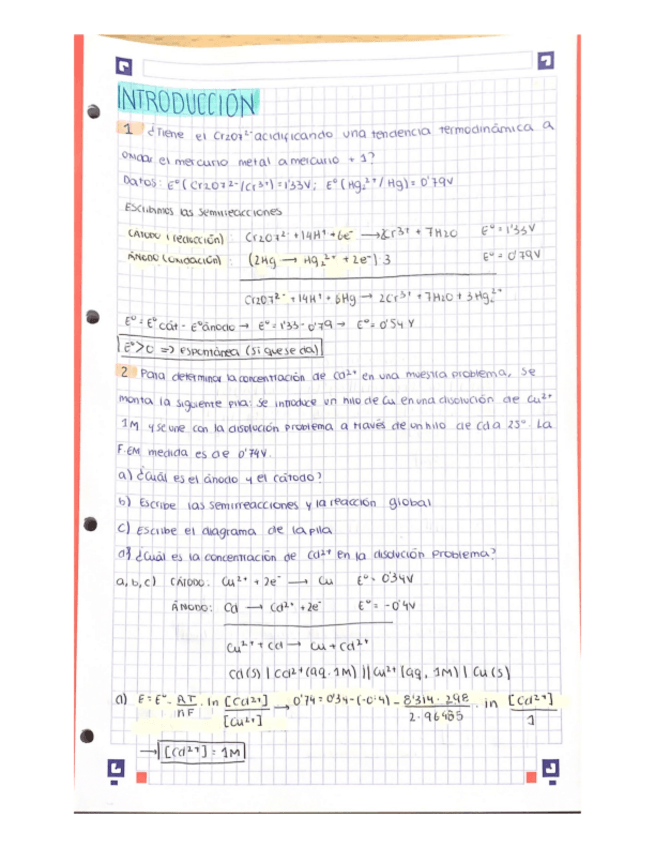 INTRODUCCIÓN
1 ¿Tiene el Cr2O7²⁻ acidificando una tendencia termodinámica a
oxidar el mercurio metal a mercurio +1?
Datos: Eº(Cr2O7²⁻/Cr³⁺)=1'33V; Eº(Hg₂²⁺/Hg)=0'79V
Escribimos las semirreacciones
CÁTODO (reducción): Cr2O7²⁻ + 14H⁺ + 6e⁻ → 2Cr³⁺ + 7H2O Eº = 1'33V
ÁNODO (oxidación): (2Hg → Hg₂²⁺ + 2e⁻)·3 Eº = 0'79V
Cr2O7²⁻ + 14H⁺ + 6Hg → 2Cr³⁺ + 7H2O + 3Hg₂²⁺
Eº = Eº cát - Eº ánodo → Eº = 1'33 - 0'79 → Eº = 0'54 V
Eº>0 => espontánea (sí que se da)
2 Para determinar la concentración de Cd²⁺ en una muestra problema, se
monta la siguiente pila: se introduce un hilo de Cu en una disolución de Cu²⁺
1M y se une con la disolución problema a través de un hilo de Cd a 25º. La
F.EM. medida es de 0'74V.
a) ¿Cuál es el ánodo y el cátodo?
b) Escribe las semirreacciones y la reacción global
c) Escribe el diagrama de la pila
d) ¿Cuál es la concentración de Cd²⁺ en la disolución problema?
a, b, c) CÁTODO: Cu²⁺ + 2e⁻ → Cu Eº = 0'34V
ÁNODO: Cd → Cd²⁺ + 2e⁻ Eº = -0'4V
Cu²⁺ + Cd → Cu + Cd²⁺
Cd(s) | Cd²⁺(aq. 1M) || Cu²⁺ (aq, 1M) | Cu(s)
d) E = Eº - RT/nF · ln [Cd²⁺]/[Cu²⁺] → 0'74 = 0'34 - (-0'4) - 8'314 · 298/2 · 96485 · ln [Cd²⁺]/1
→ [Cd²⁺] = 1M